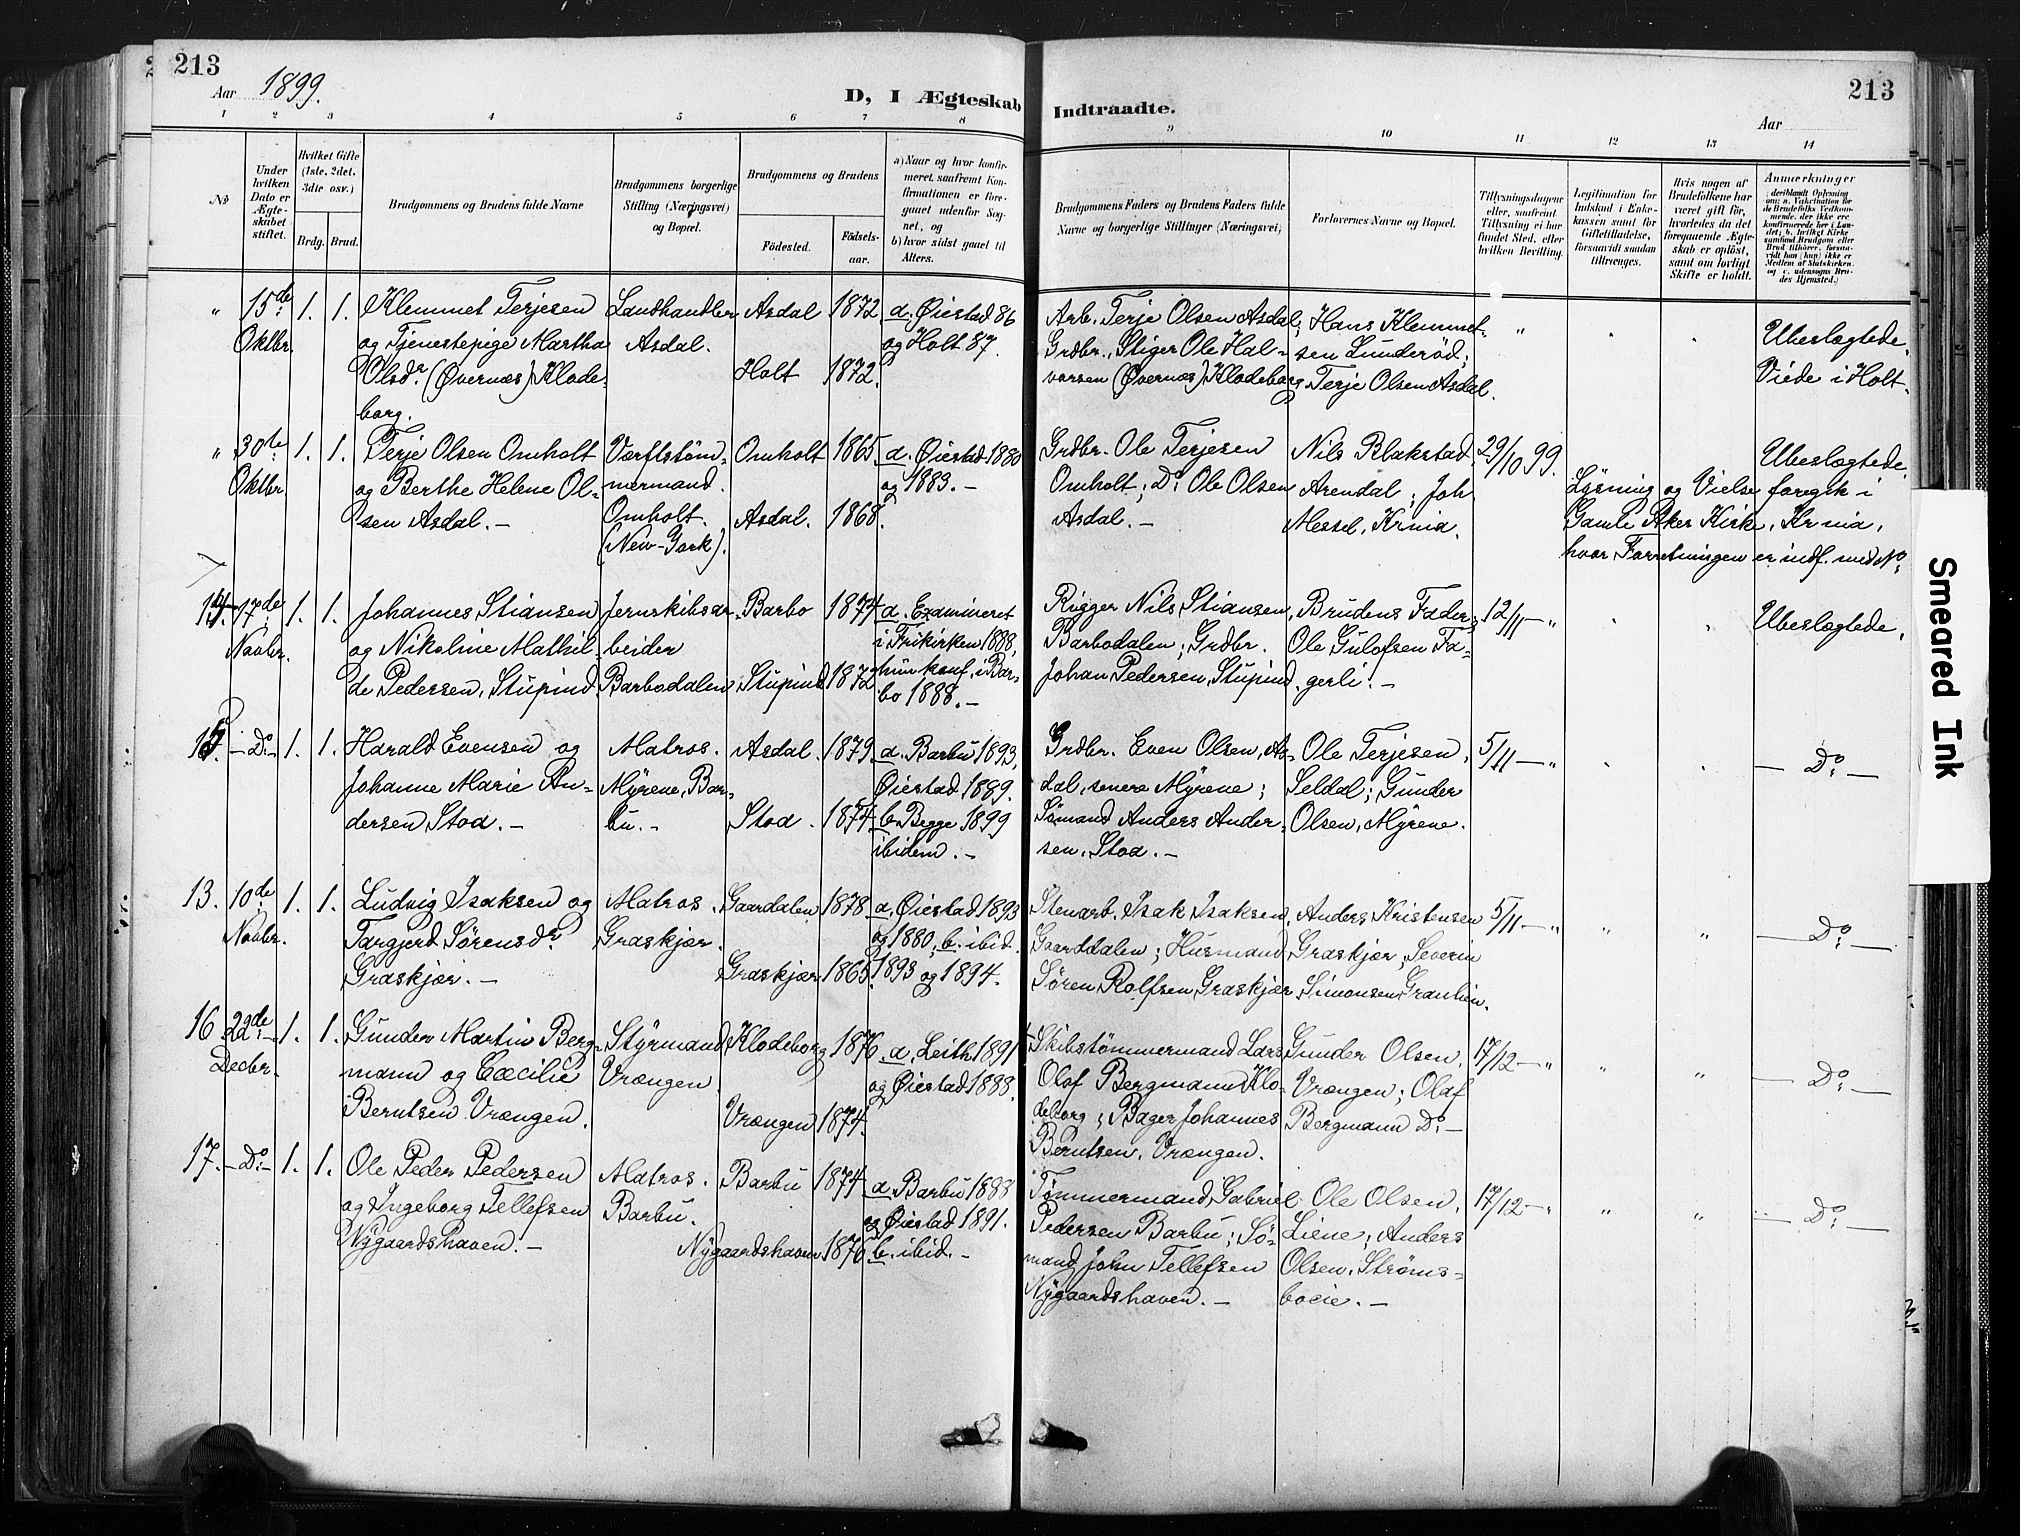 213
Aar 1899.
D, I Ægteskab Indtraadte.
213
Aar
1 2 3 4 5 6 7 8 9 10 11 12 13 14
No
Under hvilken Dato er Ægteskabet stiftet.
Hvilket Gifte (1ste, 2det, 3die osv.)
Brdg. Brud.
Brudgommens og Brudens fulde Navne
Brudgommens borgerlige Stilling (Næringsvei) og Bopæl.
Brudgommens og Brudens
Fødested. Fødselsaar.
a) Naar og hvor konfirmeret, saafremt Konfirmationen er foregaaet udenfor Sognet, og
b) hvor sidst gaaet til Alters.
Brudgommens Faders og Brudens Faders fulde Navne og borgerlige Stillinger (Næringsvei)
Forlovernes Navne og Bopæl.
Tillysningsdagene eller, saafremt Tillysning ei har fundet Sted, efter hvilken Bevilling.
Legitimation for Indskud i Enkekassen samt for Giftetilladelse, forsaavidt saadan tiltrænges.
Hvis nogen af Brudefolkene har været gift før, hvorledes da det foregaaende Ægteskab er opløst, samt om lovligt Skifte er holdt.
Anmerkninger
" 15de Oktbr. 1. 1.
Klemmet Terjesen
og Tjenestepige Martha
Olsdr. (Øvernæs) Klode-
borg.
Landhandler
Asdal.
Asdal 1872.
Holt 1872.
a. Øiestad 86
og Holt 87.
Arb. Terje Olsen Asdal;
Grdbr., Stiger Ole Hal-
vorsen (Øvernæs) Klodeborg
Hans Klemmet-
sen Lunderød;
Terje Olsen Asdal.
" " "
Ubeslægtede.
Viede i Holt.
" 30te Oktbr. 1. 1.
Terje Olsen Omholt
og Berthe Helene Ol-
sen Asdal. —
Værftstøm-
mermand.
Omholt.
(New-York).
Omholt 1865.
Asdal. 1868.
a. Øiestad 1880
og 1883. —
Grdbr. Ole Terjesen
Omholt; Do. Ole Olsen
Asdal. —
Nils Blakstad
Arendal; Joh
Messel, Krnia.
29/10 99.
Ubeslægtede.
Lysning og Vielse foregik i
Gamle Aker Kirke, Krnia,
hvor Forretningen er indf. med No.
14. 17de Novbr. 1. 1.
Johannes Stiansen
og Nikoline Mathil-
de Pedersen, Stupind
Jernskibsar-
beider
Barbodalen
Barbo 1874
Stupind 1872
a. Examineret
i Frikirken 1888,
hun konf. i Bar-
bo 1888. —
Rigger Nils Stiansen,
Barbodalen; Grdbr.
Johan Pedersen, Stupind
Brudens Fader;
Ole Gulofsen Fa-
gerli. —
12/11 — "
" "
Ubeslægtede.
15. — Do — 1. 1.
Harald Evensen og
Johanne Marie An-
dersen Stod. —
Matros.
Myrene, Bar-
bu. —
Asdal. 1879.
Stod. 1874.
a. Barbu 1893,
Øiestad 1889.
b. Begge 1899
ibidem. —
Grdbr. Even Olsen, As-
dal, senere Myrene;
Sømand Anders Ander-
sen, Stod. —
Ole Terjesen,
Seldal; Gunder
Olsen, Myrene.
5/11 — "
" "
— Do. —
13. 10de Novbr. 1. 1.
Ludvig Isaksen og
Torgjerd Sørensdr.
Graskjær. —
Matros.
Graskjær.
Gaardalen 1878.
Graskjær 1865.
a. Øiestad 1893
og 1880, b. ibid.
1893 og 1894.
Stenarb. Isak Isaksen,
Gaarddalen; Husmand
Søren Rolfsen, Graskjær
Anders Kristensen
Graskjær, Severin
Simonsen, Granlien.
5/11 — "
" "
— Do. —
16 22de Decbr. 1. 1.
Gunder Martin Berg-
mann og Cæcilie
Berntsen, Vrængen.
Styrmand
Vrængen.
Klodeborg 1876.
Vrængen 1874.
a. Leith 1891
og Øiestad 1888.
Skibstømmermand Lars
Olaf Bergmann Klo-
deborg; Bager Johannes
Berntsen, Vrængen.
Gunder Olsen,
Vrængen; Olaf
Bergmann Do. —
17/12 — "
" "
— Do. —
17. — Do — 1. 1.
Ole Peder Pedersen
og Ingeborg Tellefsen
Nygaardshaven. —
Matros.
Barbu.
Barbu 1874.
Nygaardshaven 1876
a. Barbu 1888
og Øiestad 1891.
b. ibid. —
Tømmermand, Gabriel
Pedersen Barbu; Sø-
mand, John Tellefsen
Nygaardshaven. —
Ole Olsen,
Liene; Anders
Olsen, Strøms-
boeie. —
17/12 — "
" "
— Do. —
Smeared Ink